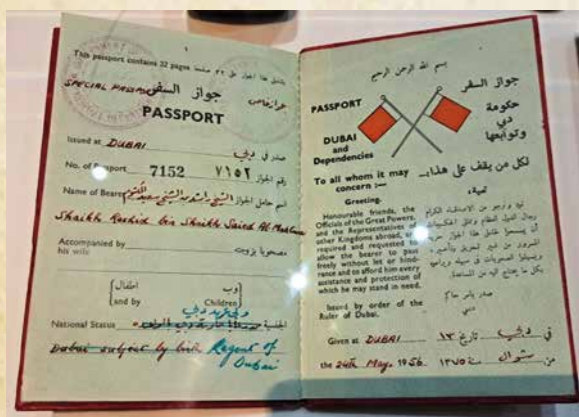 This passport contains 32 pages يشتمل هذا الجواز على ٣٢ صفحة
SPECIAL PASSPORT جواز السفر جواز خاص
PASSPORT
Issued at DUBAI صدر في دبي
No. of Passport 7152 ٧١٥٢ رقم الجواز
Name of Bearer اسم حامل الجواز
Shaikh Rashid bin Shaikh Saied Al-Maktum
Accompanied by
his wife مصحوبا بزوجته
and by Children وب اطفال
National Status الجنسية
Dubai subject by birth Regent of
Dubai
بسم الله الرحمن الرحيم
PASSPORT
DUBAI
and
Dependencies
جواز السفر
حكومة
دبي
وتوابعها
To all whom it may
concern :—
لكل من يقف على هذا
Greeting.
تحية
Honourable friends, the
Officials of the Great Powers,
and the Representatives of
other Kingdoms abroad, are
required and requested to
allow the bearer to pass
freely without let or hind-
rance and to afford him every
assistance and protection of
which he may stand in need.
Issued by order of the
Ruler of Dubai.
صدر بامر حاكم
دبي
Given at DUBAI في دبي تاريخ ١٣
the 24th May, 1956 من شوال سنة ١٣٧٥